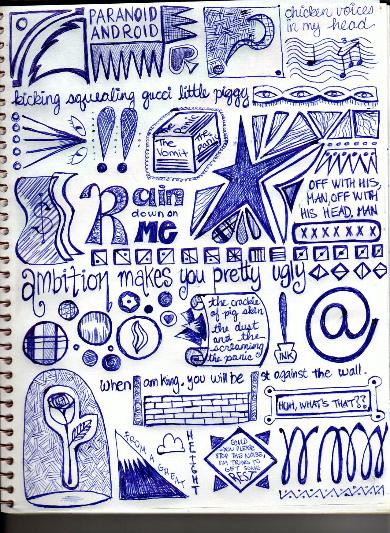 PARANOID
ANDROID
chicken voices
in my head
kicking squealing gucci little piggy
The
Vomit
Panic
The
Panic
Rain
down on
ME
OFF WITH HIS
MAN, OFF WITH
HIS HEAD, MAN
XXXXXXX
ambition makes you pretty ugly
the crackle
of pig skin
the dust
and the
screaming
the panic
INK
@
when I am king, you will be 1st against the wall.
HUH, WHAT'S THAT??
FROM A GREAT
HEIGHT
COULD
YOU PLEASE
STOP THE NOISE,
I'M TRYING TO
GET SOME
REST